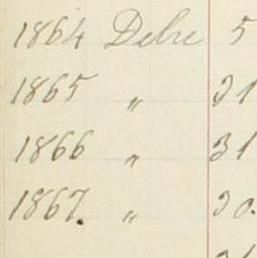 1864 Debre 5
1865 " 31
1866 " 31
1867. " 30.